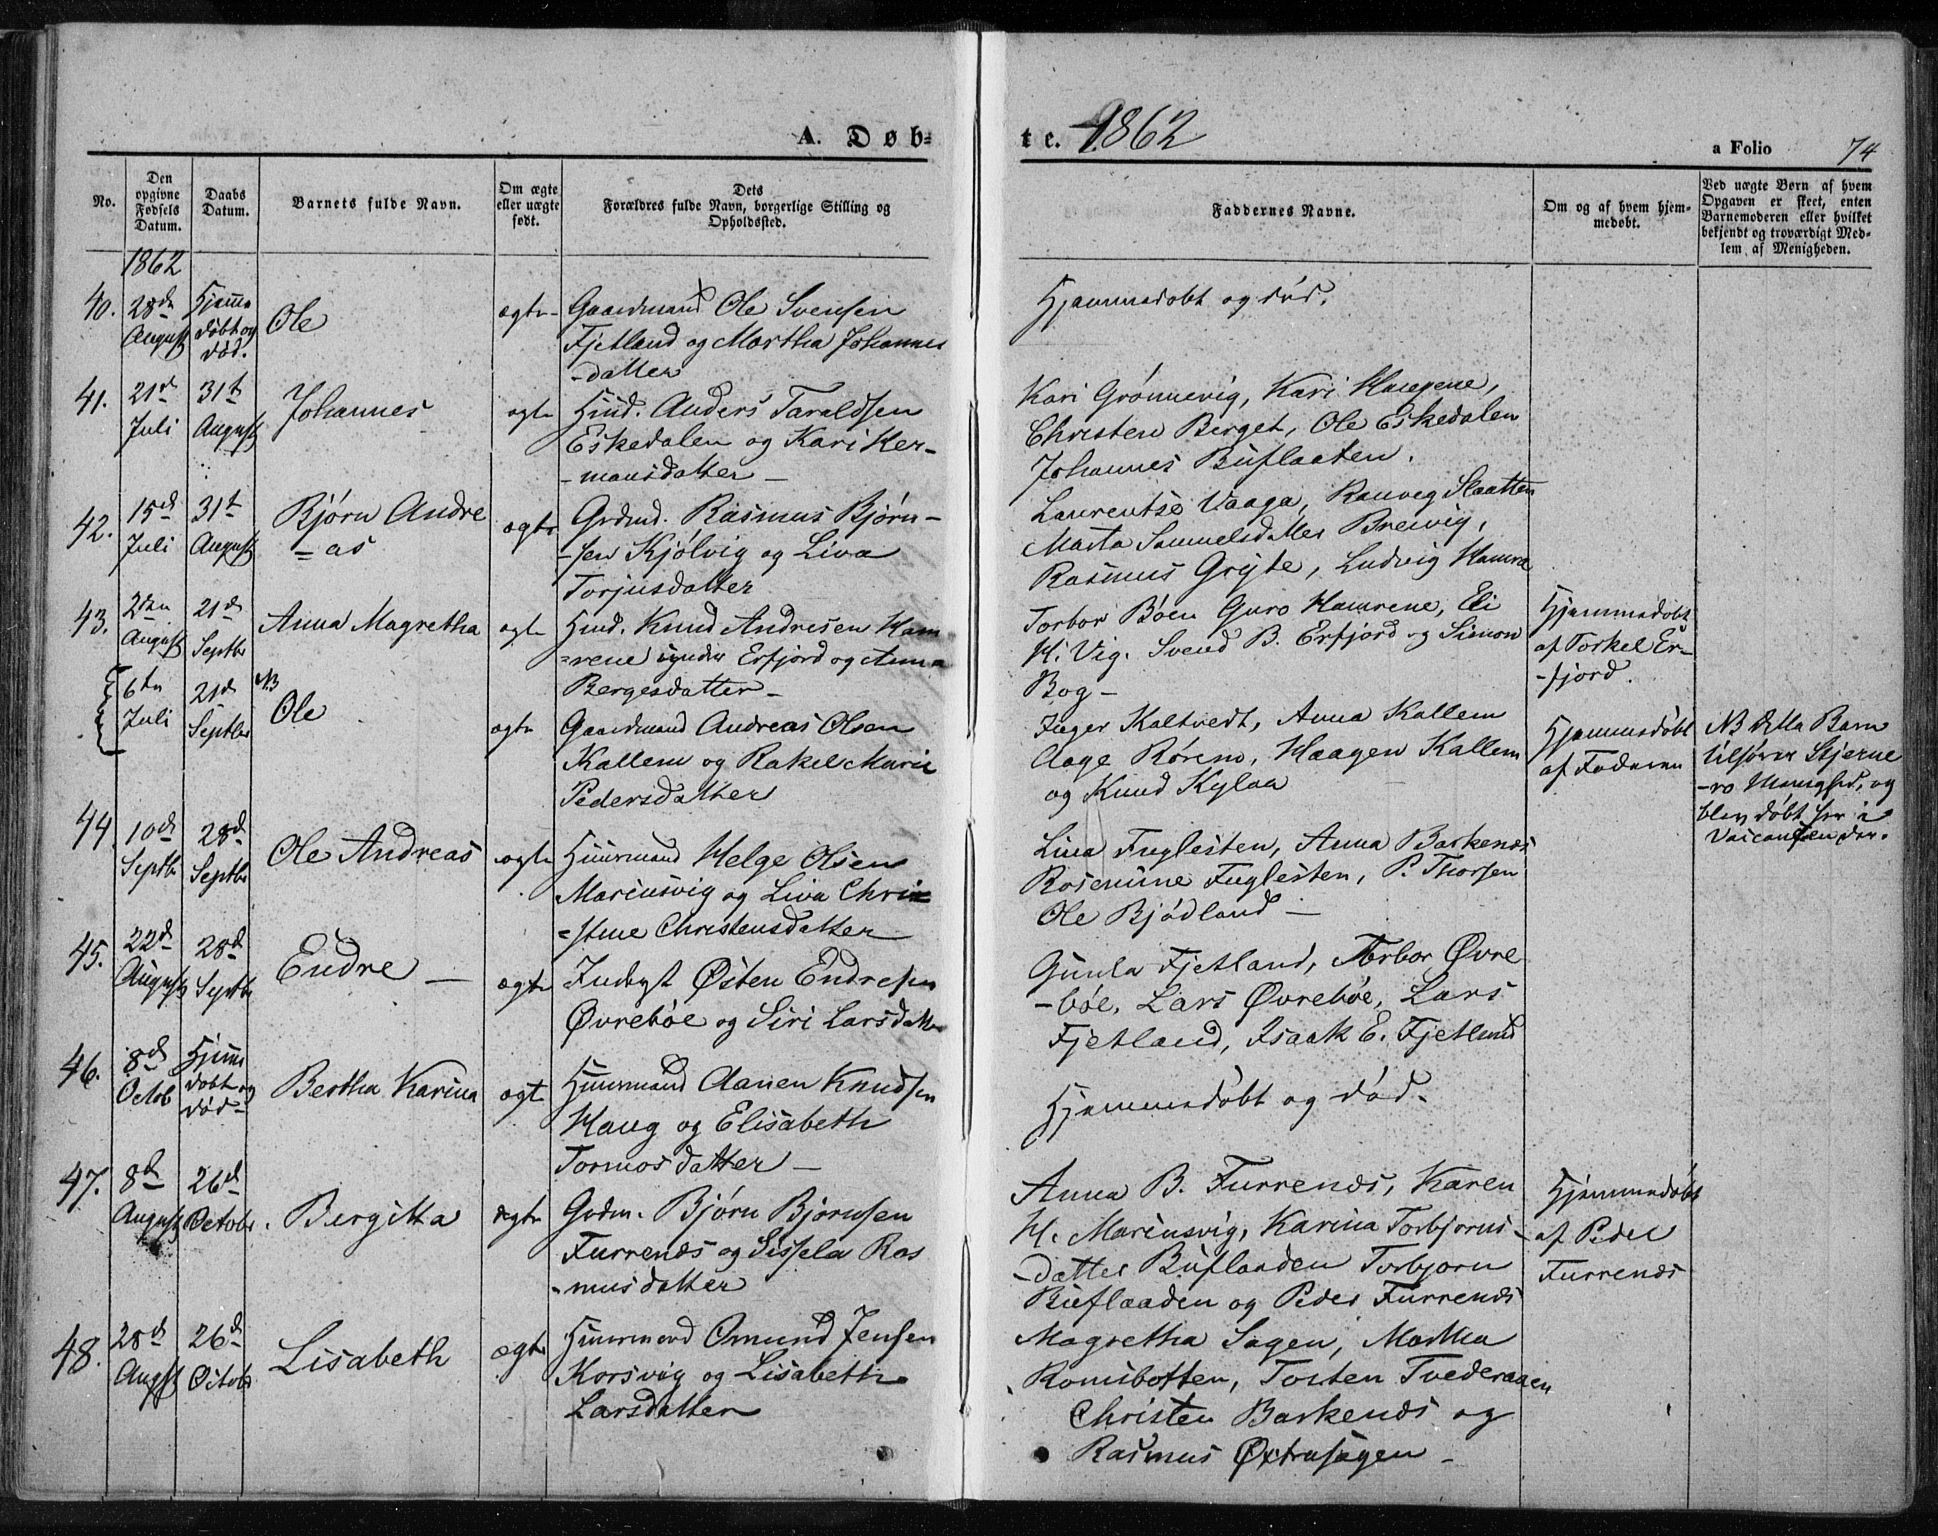 A. Døb=
te. 1862
a Folio 74
No.
Den opgivne Fødsels Datum.
Daabs Datum.
Barnets fulde Navn.
Om ægte eller uægte født.
Dets Forældres fulde Navn, borgerlige Stilling og Opholdssted.
Faddernes Navne.
Om og af hvem hjemmedøbt.
Ved uægte Børn af hvem Opgaven er skeet, enten Barnemoderen eller hvilket bekjendt og troværdigt Medlem af Menigheden.
1862
40. 28de August
Hjemmedøbt og død.
Ole
ægte
Gaardmand Ole Svensen
Fjetland og Martha Johannes
-datter
Hjemmedøbt og død.
41. 21de Juli
31t August
Johannes
ægte
Huusd. Anders Taraldsen
Eskedalen og Kari Her-
-mansdatter -
Kari Grønnevig, Kari Haugene,
Christen Berget, Ole Eskedalen
Johannes Buflaaten.
42. 15de Juli
31t August
Bjørn Andre
=as
ægte
Grdmd. Rasmus Bjørn-
-sen Kjølvig og Liva
Torjusdatter
Laurentse Vaaga, Ranveg Slaatten
Marta Samuelsdatter Breivig,
Rasmus Gryte, Ludvig Hamre
43. 2den August
21de Septbr
Anna Magretha
ægte
Hmd. Knud Andresen Ham
=rene under Erfjord og Anna
Bergesdatter -
Torbor Bøen Guro Hamrene, Eli
H. Vig. Svend B. Erfjord og Simon
Bog -
Hjemmedøbt
af Torkel Er-
-fjord.
6te Juli
21de Septbr
NB
Ole
ægte
Gaardmand Andreas Olsen
Kallem og Rakel Marie
Pedersdatter
Inger Kaltvedt, Anna Kallem
Aage Røren, Haagen Kallem
og Knud Kylaa
Hjemmedøbt
af Faderen
NB dette Barn
tilhører Stjerne
-ro Menighed, og
blev døbt her i
Vaicancen der.
44. 10de Septbr
28de Septbr
Ole Andreas
ægte
Huusmand Helge Olsen
Marcusvig og Liva Chri
=stine Christensdatter
Lina Fuglesten, Anna Barkenes
Rosenine Fuglesten, P. Thorsen
Ole Bjødland -
45. 22de August
28de Septbr
Endre -
ægte
Inderst Østen Endresen
Øvrebøe og Siri Larsdatter
Gunla Fjetland, Torbor Øvre
-bøe, Lars Øvrebøe, Lars
Fjetland, Isaak E. Fjetland
46. 8de Octob
Hjemmedøbt og død
Bertha Karina
ægte
Huusmand Aanen Knudsen
Haug og Elisabeth
Tormosdatter -
Hjemmedøbt og død.
47. 8de August
26de Octobr
Bergitta
ægte
Grdm. Bjørn Bjørnsen
Furrenes og Sissela Ras
-musdatter
Anna B. Furrenes, Karen
H. Marcusvig, Karina Torbjorns-
-datter Buflaaden Torbjorn
Buflaaden og Peder Furrenes
Hjemmedøbt
af Peder
Furrenes
48. 28de Augst
26de Octobr
Lisabeth
ægte
Huusmand Omund Jensen
Korsvig og Lisabeth
Larsdatter
Magretha Sagen, Martha
Romsbotten, Tosten Tvederaaen
Christen Barkenes og
Rasmus Øxtrasagen -